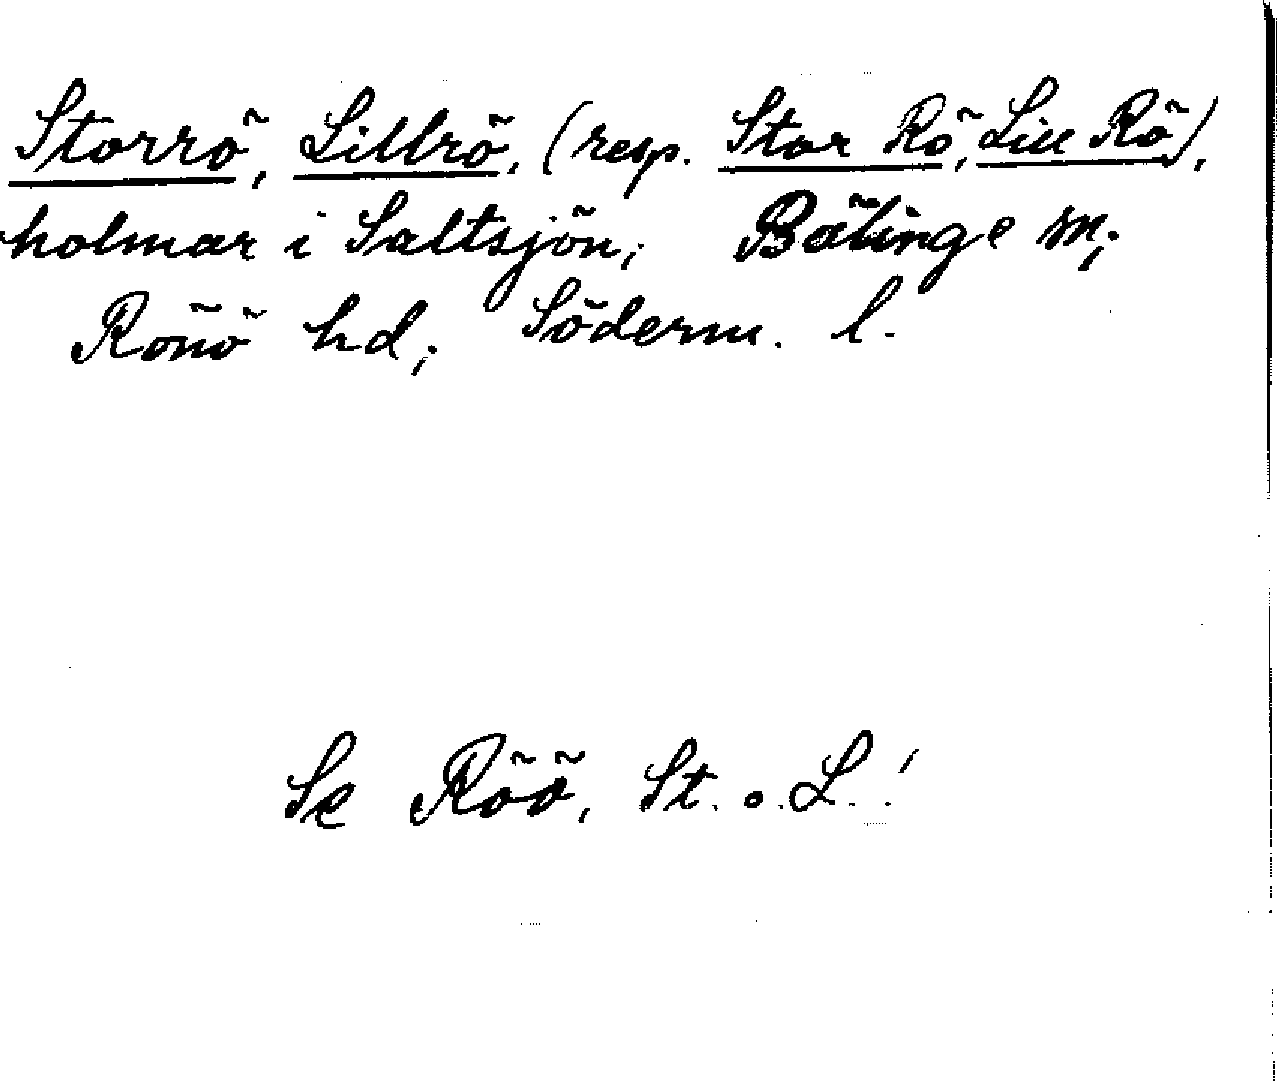 Storrö, Lillrö, (resp. Stor Rö, Lill Rö),
holmar i Saltsjön; Bälinge sn;
Rönö hd; Söderm. l.
Se Röö, St. o. L.!